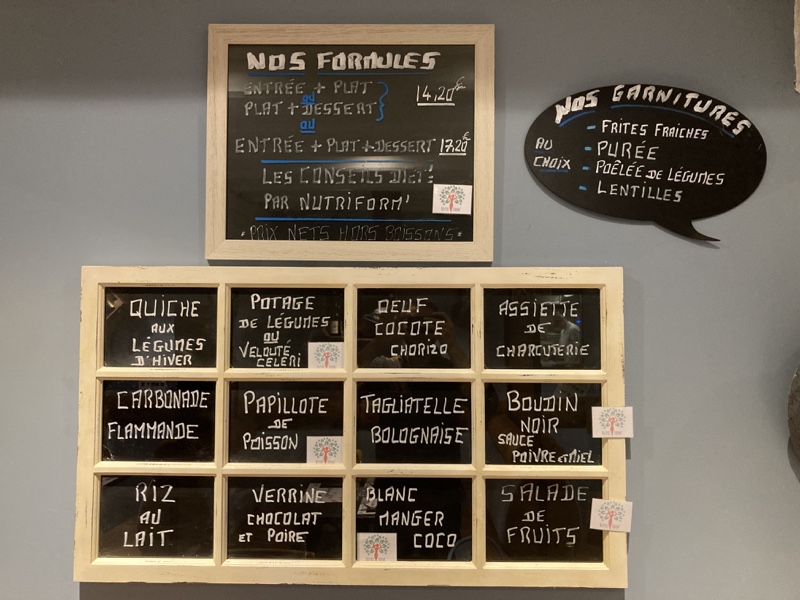 NOS FORMULES
ENTRÉE + PLAT
OU
PLAT + DESSERT
14,20€
OU
ENTRÉE + PLAT + DESSERT 17,20€
LES CONSEILS DIET!
PAR NUTRIFORM'
* PRIX NETS HORS BOISSONS *
NOS GARNITURES
AU CHOIX
- FRITES FRAICHES
- PURÉE
- POÊLÉE DE LÉGUMES
- LENTILLES
QUICHE
AUX
LÉGUMES
D'HIVER
POTAGE
DE LÉGUMES
OU
VELOUTÉ
CELERI
OEUF
COCOTE
CHORIZO
ASSIETTE
DE
CHARCUTERIE
CARBONADE
FLAMMANDE
PAPILLOTE
DE
POISSON
TAGLIATELLE
BOLOGNAISE
BOUDIN
NOIR
SAUCE
POIVRE et MIEL
RIZ
AU
LAIT
VERRINE
CHOCOLAT
ET POIRE
BLANC
MANGER
COCO
SALADE
DE
FRUITS